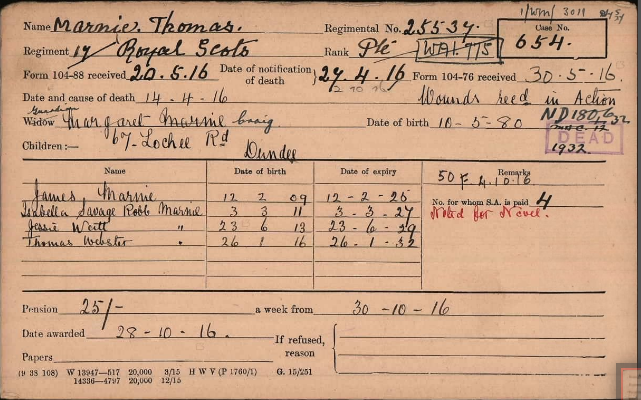 Name Marnie. Thomas. Regimental No. 25537. 1/WM/ 3011
Case No. 654.
Regiment 17/ Royal Scots Rank Pte W.A1.775
Form 104-88 received 20.5.16 Date of notification of death } 27.4.16 Form 104-76 received 30.5.16.
2 10 16
Date and cause of death 14-4-16 Wounds recd in Action
Guardian
Widow Margaret Marnie Craig Date of birth 10-5-80 ND180,6/32
Children:— 67- Lochee Rd DEAD
Dundee 1932.
Name Date of birth Date of expiry Remarks
50 F 4.10.16
James Marnie 12 2 09 12-2-25 No. for whom S.A. is paid 4
Isabella Savage Robb Marnie 3 3 11 3-3-27 Noted for Novel.
Jessie " 23 6 13 23-6-29
Thomas Webster " 26 1 16 26-1-32
Pension 25/- a week from 30-10-16
Date awarded 28-10-16. If refused, reason
Papers
(9 38 108) W 13947—517 20,000 3/15 H W V (P 1760/1) G. 15/251
14336—4797 20,000 12/15